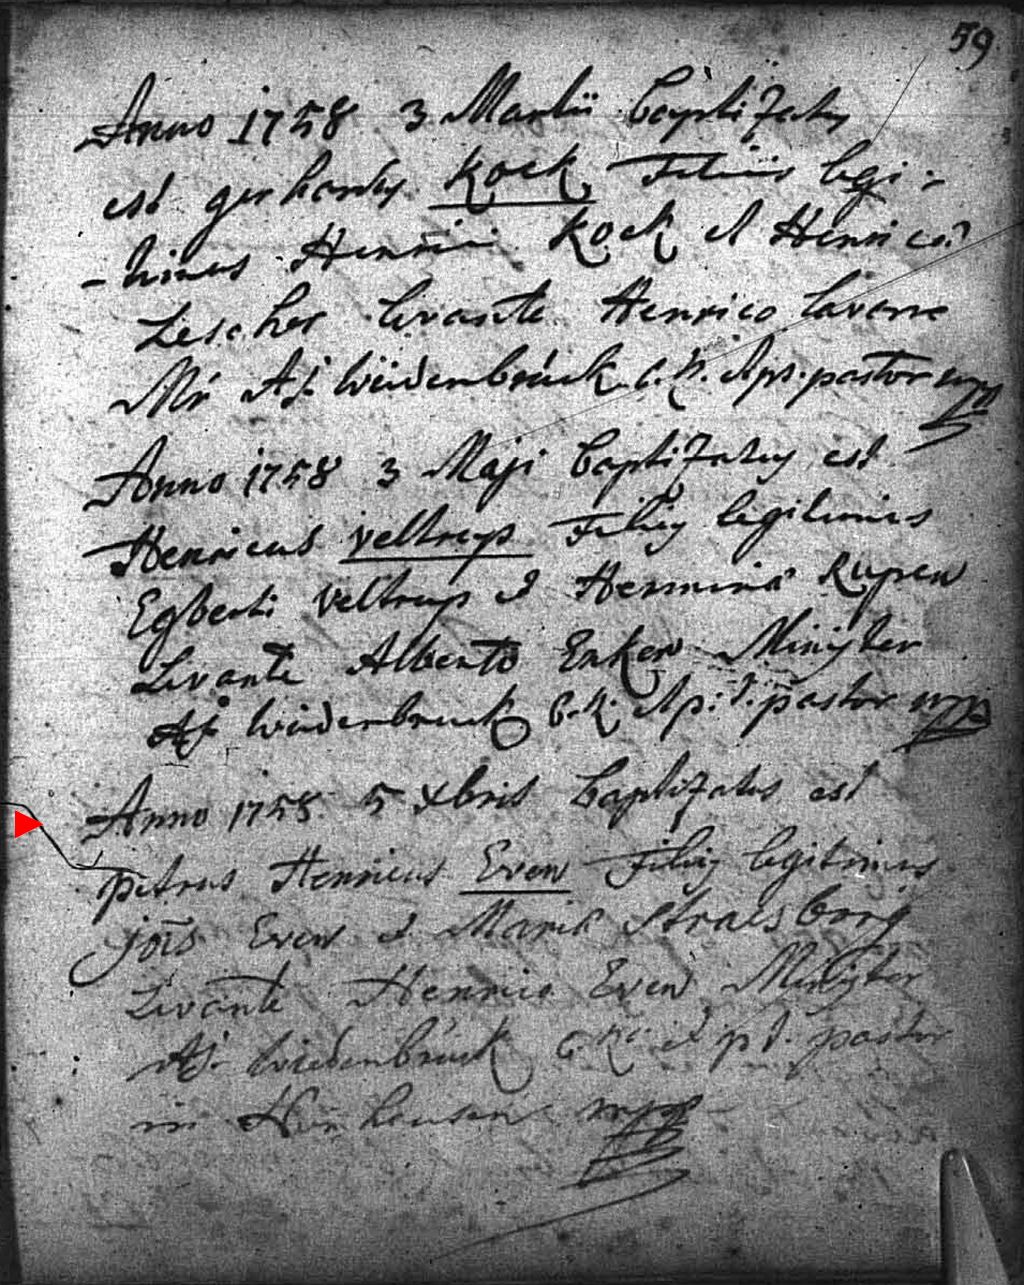 59
Anno 1758 3 Martii baptizatus
est gerhardus Kock Filius legi-
-timus Henrici Kock et Henricae
Lescher levante Henrico
Mr AJ Wiedenbrück pastor mpp
Anno 1758 3 Maji baptizatus est
Henricus veltrup Filius legitimus
Egberti Veltrup et Hermina Kupen
Levante Alberto Enken Minister
AJ Wiedenbruck pastor mpp
Anno 1758 5 xbris baptizatus est
petrus Henricus Even Filius legitimus
jois Even et Maria Straesborg
Levante Henrico Even Minister
AJ Wiedenbrück pastor
in mpp